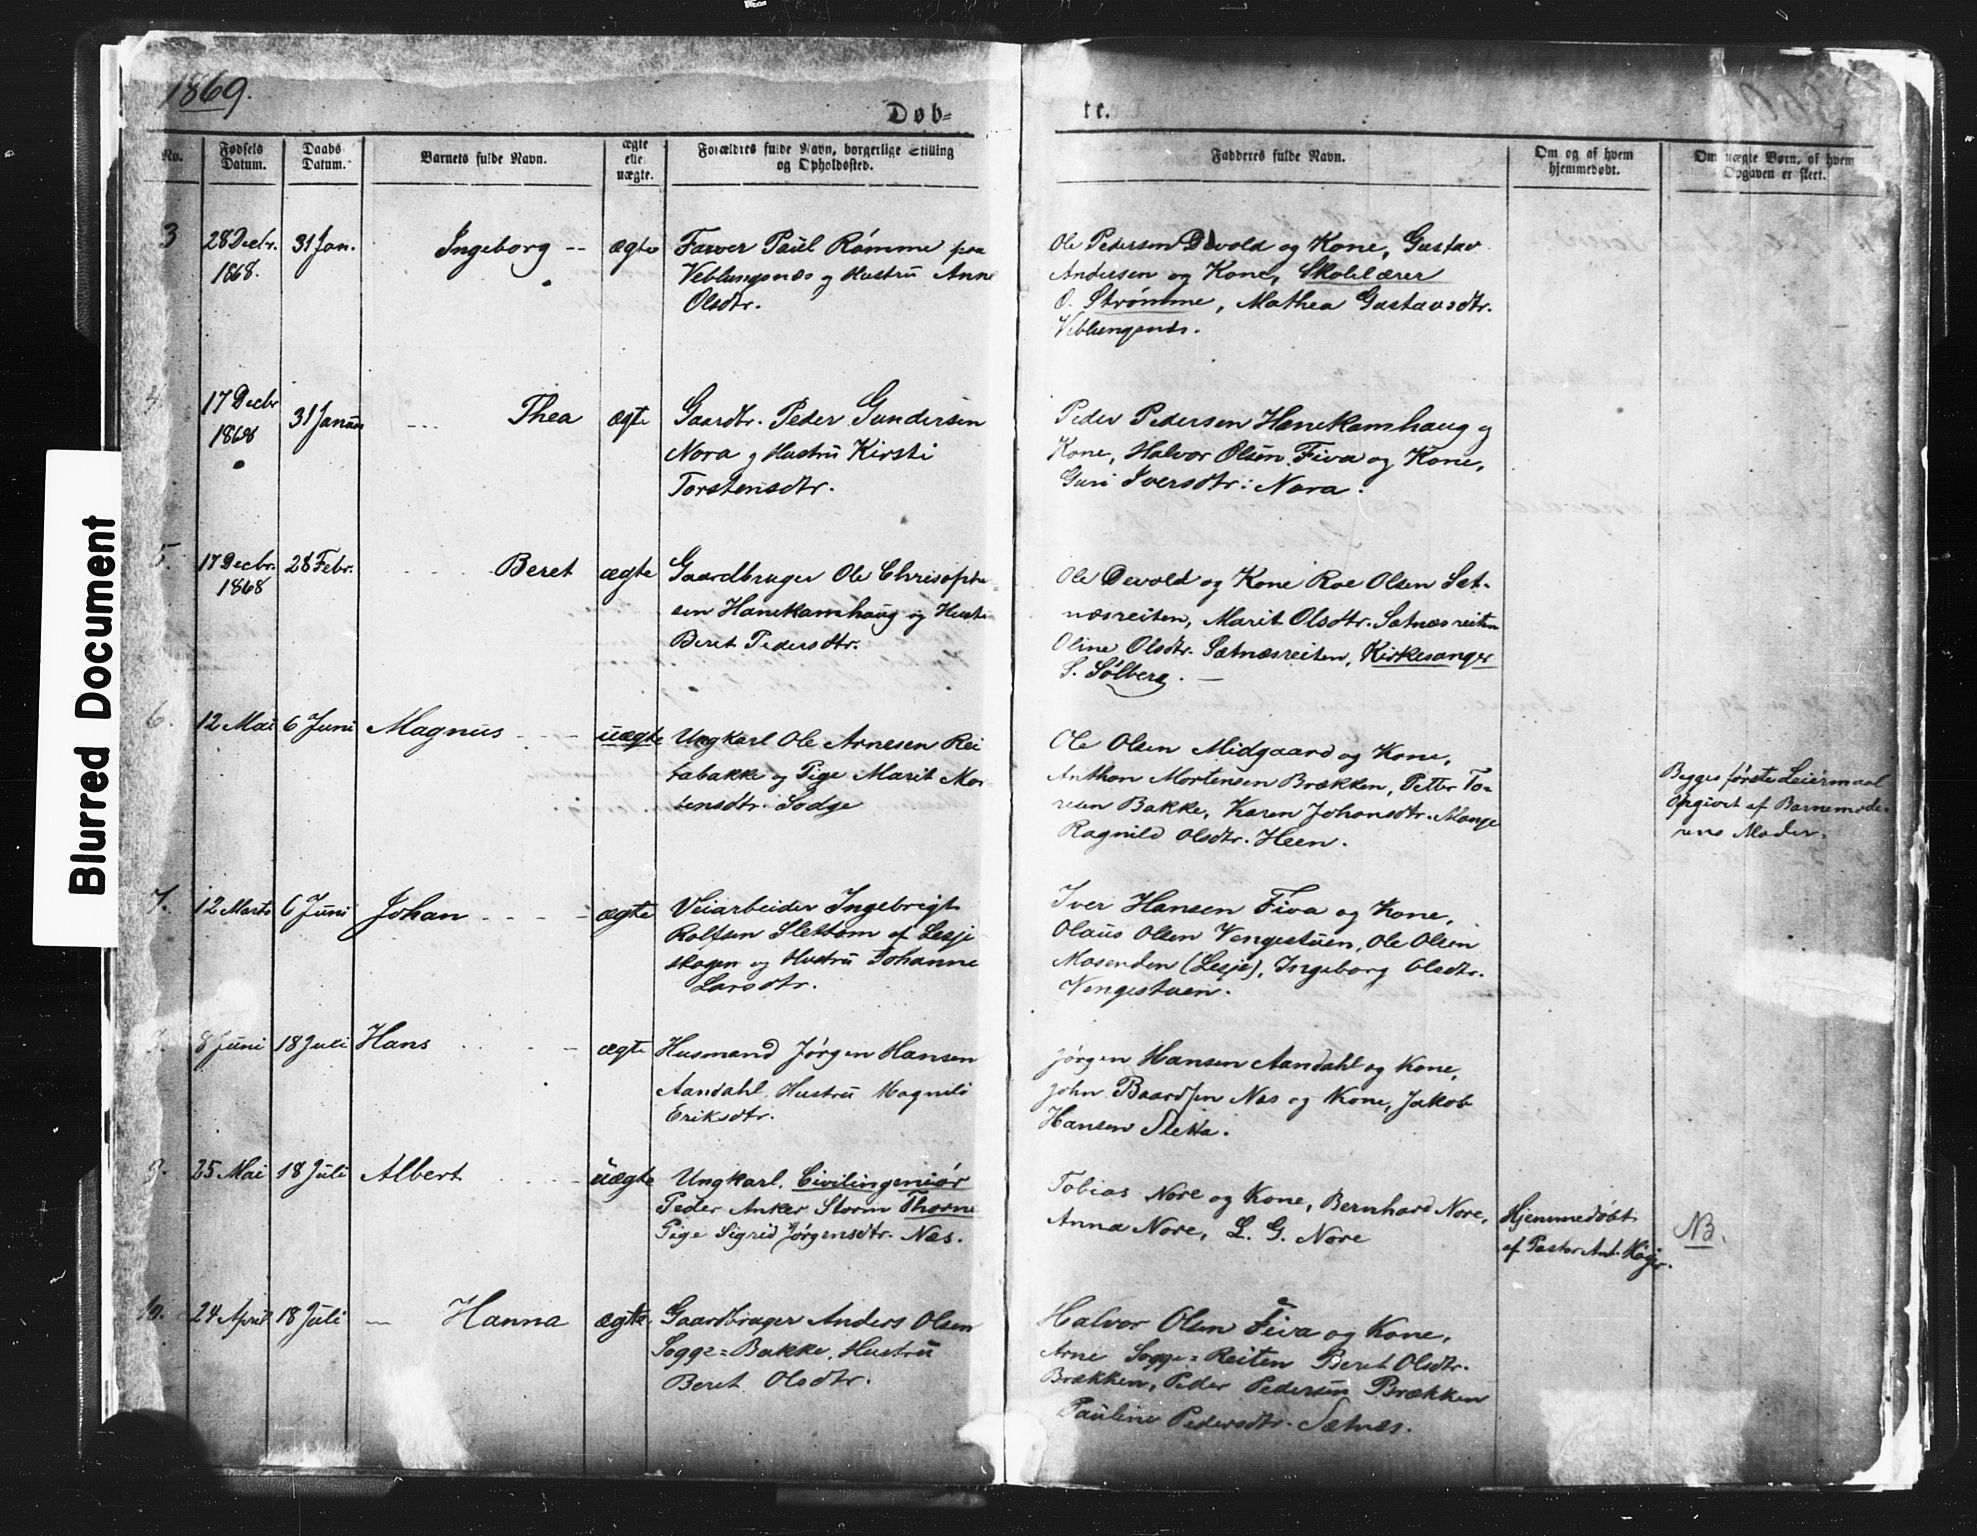 1869.
Døb=
te.
No.
Fødsels Datum.
Daabs Datum.
Barnets fulde Navn.
ægte eller uægte.
Forældres fulde Navn, borgerlige Stilling og Opholdssted.
Fadderes fulde Navn.
Om og af hvem hjemmedøbt.
Om uægte Børn, af hvem Opgaven er skeet.
Blurred Document
3 28 Decbr. 31 Jan. Ingeborg -- ægte Farver Paul Rømme fra
1868. Veblungsnæs og Hustru Anne
Olsdtr.
Ole Pedersen Devold og Kone, Gustav
Andersen og Kone, Skolelærer
O. Strømme, Mathea Gustavsdtr.
Veblungsnæs.
4. 17 Decbr 31 Januar --- Thea ægte Gaardbr. Peder Gundersen
1868 Nora og Hustru Kirsti
Torstensdtr.
Peder Pedersen Hanekamhaug og
Kone, Halvor Olsen Fiva og Kone,
Guri Iversdtr: Nora.
5. 17 Decbr. 28 Febr. ---- Beret ægte Gaardbruger Ole Christophe
1868 sen Hanekamhaug og Hustr
Beret Pedersdtr.
Ole Devold og Kone Roe Olsen Sæt-
næsreiten, Marit Olsdtr. Sætnæsreiten
Oline Olsdtr. Sætnæsreiten, Kirkesanger
S. Sølberg. —
6. 12 Mai 6 Juni Magnus --- uægte Ungkarl Ole Arnesen Rei
tabakke og Pige Marit Mor
tensdtr. Sodge
Ole Olsen Midgaard og Kone,
Anthon Mortensen Brækken, Petter To-
resen Bakke, Karen Johansdtr. Mange
Ragnild Olsdtr. Heen.
Begges første Leiermaal
Opgivet af Barnemode-
rens Moder.
7. 12 Marts 6 Juni Johan ---- ægte Veiarbeider Ingebrigt
Rolfsen Slettom af Lesje
skogen og Hustru Johanne
Larsdtr.
Iver Hansen Fiva og Kone,
Olaus Olsen Vengestuen, Ole Olsen
Mosenden (Lesje), Ingeborg Olsdtr.
Vengestuen.
8 Juni 18 Juli Hans --- ægte Husmand Jørgen Hansen
Aandahl. Hustru Magnild
Eriksdtr.
Jørgen Hansen Aandahl og Kone,
John Baardsen Næs og Kone, Jakob
Hansen Sletta.
9. 25 Mai 18 Juli Albert ---- uægte Ungkarl. Civilingeniør
Peder Anker Storm Thorne
Pige Sigrid Jørgensdtr. Næs.
Tobias Nore og Kone, Bernhard Nore,
Anna Nore, L. G. Nore
Hjemmedøbt
af Pastor Ant. Køgr.
NB.
10. 24 April 18 Juli — Hanna ægte. Gaardbruger Anders Olsen
Sogge=Bakke, Hustru
Beret Olsdtr.
Halvor Olsen Fiva og Kone,
Arne Sogge=Reiten Beret Olsdtr.
Brækken, Peder Pedersen Brækken
Pauline Pedersdtr. Sætnæs.